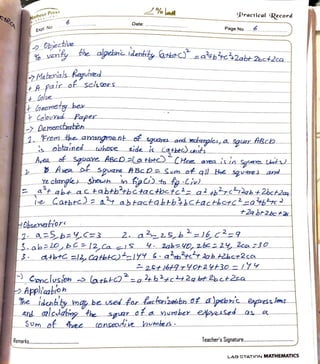 Practical Record
Expt. No. 6
Date
Page No. 6
→ Objective
To verify the algebraic identity (a+b+c)² = a²+b²+c²+2ab+2bc+2ca
→ Materials Required
+ A pair of scissors
+ Glue
+ Geometry box
+ Coloured Paper
→ Demonstration
1. From the arrangement of squares and rectangles, a square ABCD
is obtained whose side is (a+b+c) units
Area of square ABCD = (a+b+c)² (Here area is in square units)
Area of square ABCD = Sum of all the squares and
rectangles shown in fig (i) to fig (iv)
= a²+ab+ac+ab+b²+bc+ac+bc+c² = a²+b²+c²+2ab+2bc+2ca
i.e (a+b+c)² = a²+ab+ac+ab+b²+bc+ac+bc+c² = a²+b²+c²
+2ab+2bc+2ca
→ Observation:
1. a=5, b=4, c=3 2. a²=25, b²=16, c²=9
3. ab=20, bc=12, ca=15 4. 2ab=40, 2bc=24, 2ca=30
5. a+b+c=12, (a+b+c)²=144 6. a²+b²+c²+2ab+2bc+2ca
=25+16+9+40+24+30=144
→ Conclusion → (a+b+c)² = a²+b²+c²+2ab+2bc+2ca
→ Application
The identity may be used for factorization of algebraic expressions
and calculating the square of a number expressed as a
sum of three consecutive numbers.
Remarks
Teacher's Signature
LAB STATION MATHEMATICS